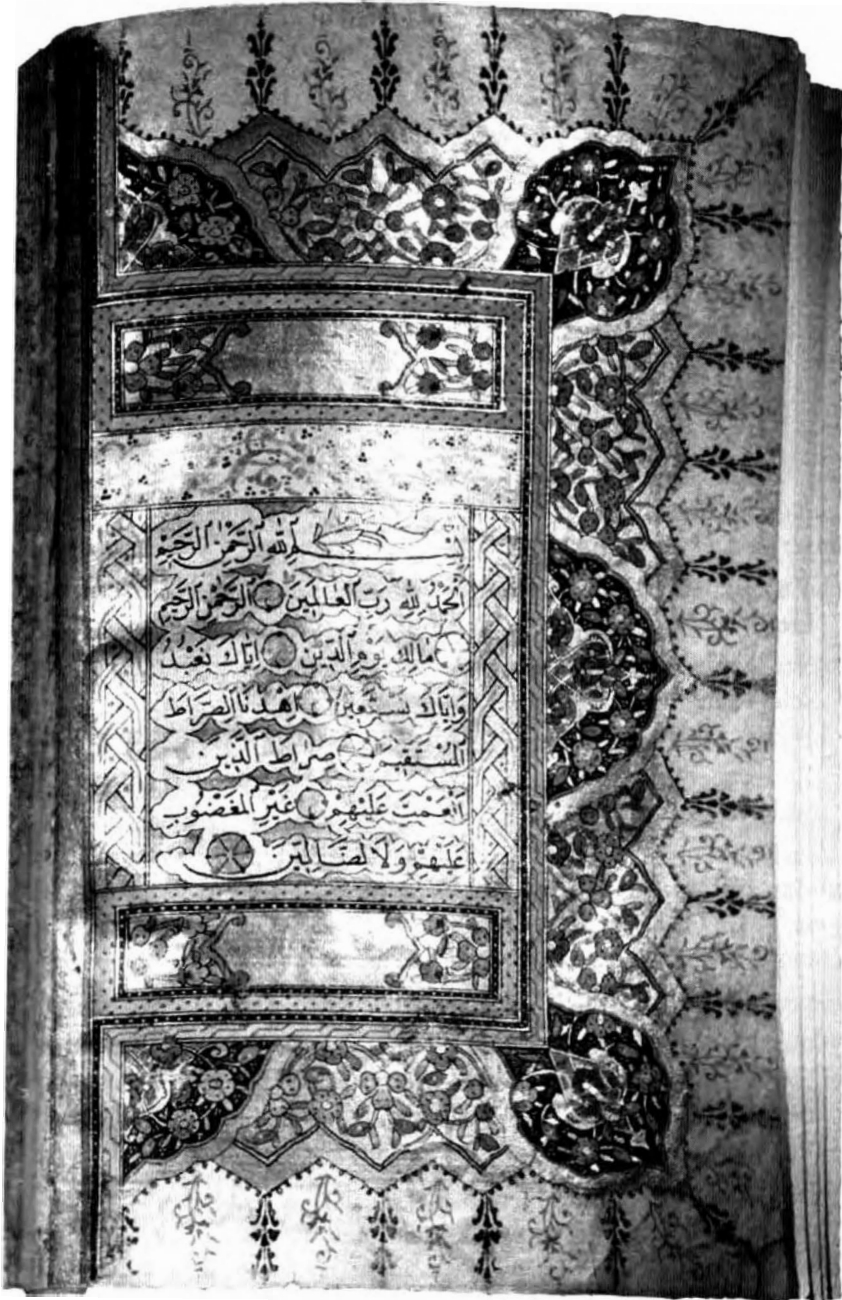 بِسْمِ اللهِ الرَّحْمٰنِ الرَّحِيمِ
اَلْحَمْدُ لِلهِ رَبِّ الْعَالَمِينَ الرَّحْمٰنِ الرَّحِيمِ
مَالِكِ يَوْمِ الدِّينِ اِيَّاكَ نَعْبُدُ
وَاِيَّاكَ نَسْتَعِينُ اِهْدِنَا الصِّرَاطَ
الْمُسْتَقِيمَ صِرَاطَ الَّذِينَ
اَنْعَمْتَ عَلَيْهِمْ غَيْرِ الْمَغْضُوبِ
عَلَيْهِمْ وَلَا الضَّالِّينَ